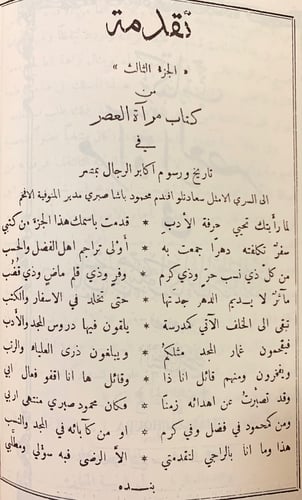 تقدمة
« الجزء الثالث »
من
كتاب مرآة العصر
في
تاريخ ورسوم أكابر الرجال بمصر
الى السري الامثل سعادتلو افندم محمود باشا صبري مدير المنوفية الافخم
لما رأيتك تحيي حرفة الأدب * قدمت باسمك هذا الجزء من كتبي
سفرٌ تكلفته دهراً جمعت به * أولى تراجم اهل الفضل والحسب
من كل ذي نسب حرٍّ وذي كرم * وفرٍ وذي قلم ماضٍ وذي قضب
مآثرٌ لا يديم الدهر جدتها * حتى تخلد في الاسفار والكتب
تبقى الى الخلف الآتي كمدرسة * يلقون فيها دروس المجد والأدب
فيجمعون ثمار المجد مثلكمُ * ويبلغون ذرى العلياء والرتب
ويفخرون ومنهم قائل انا ذا * وقائل ها انا اقفو فعال ابي
وقد تصبرت عن اهدائه زمناً * فكان محمود صبري منتهى اربي
ومن كمحمود في فضل وفي كرم * او من كآبائه في المجد والنسب
هذا وما انا بالراجي لتقدمتي * الا الرضى فيه سؤلي ومطلبي
بنده